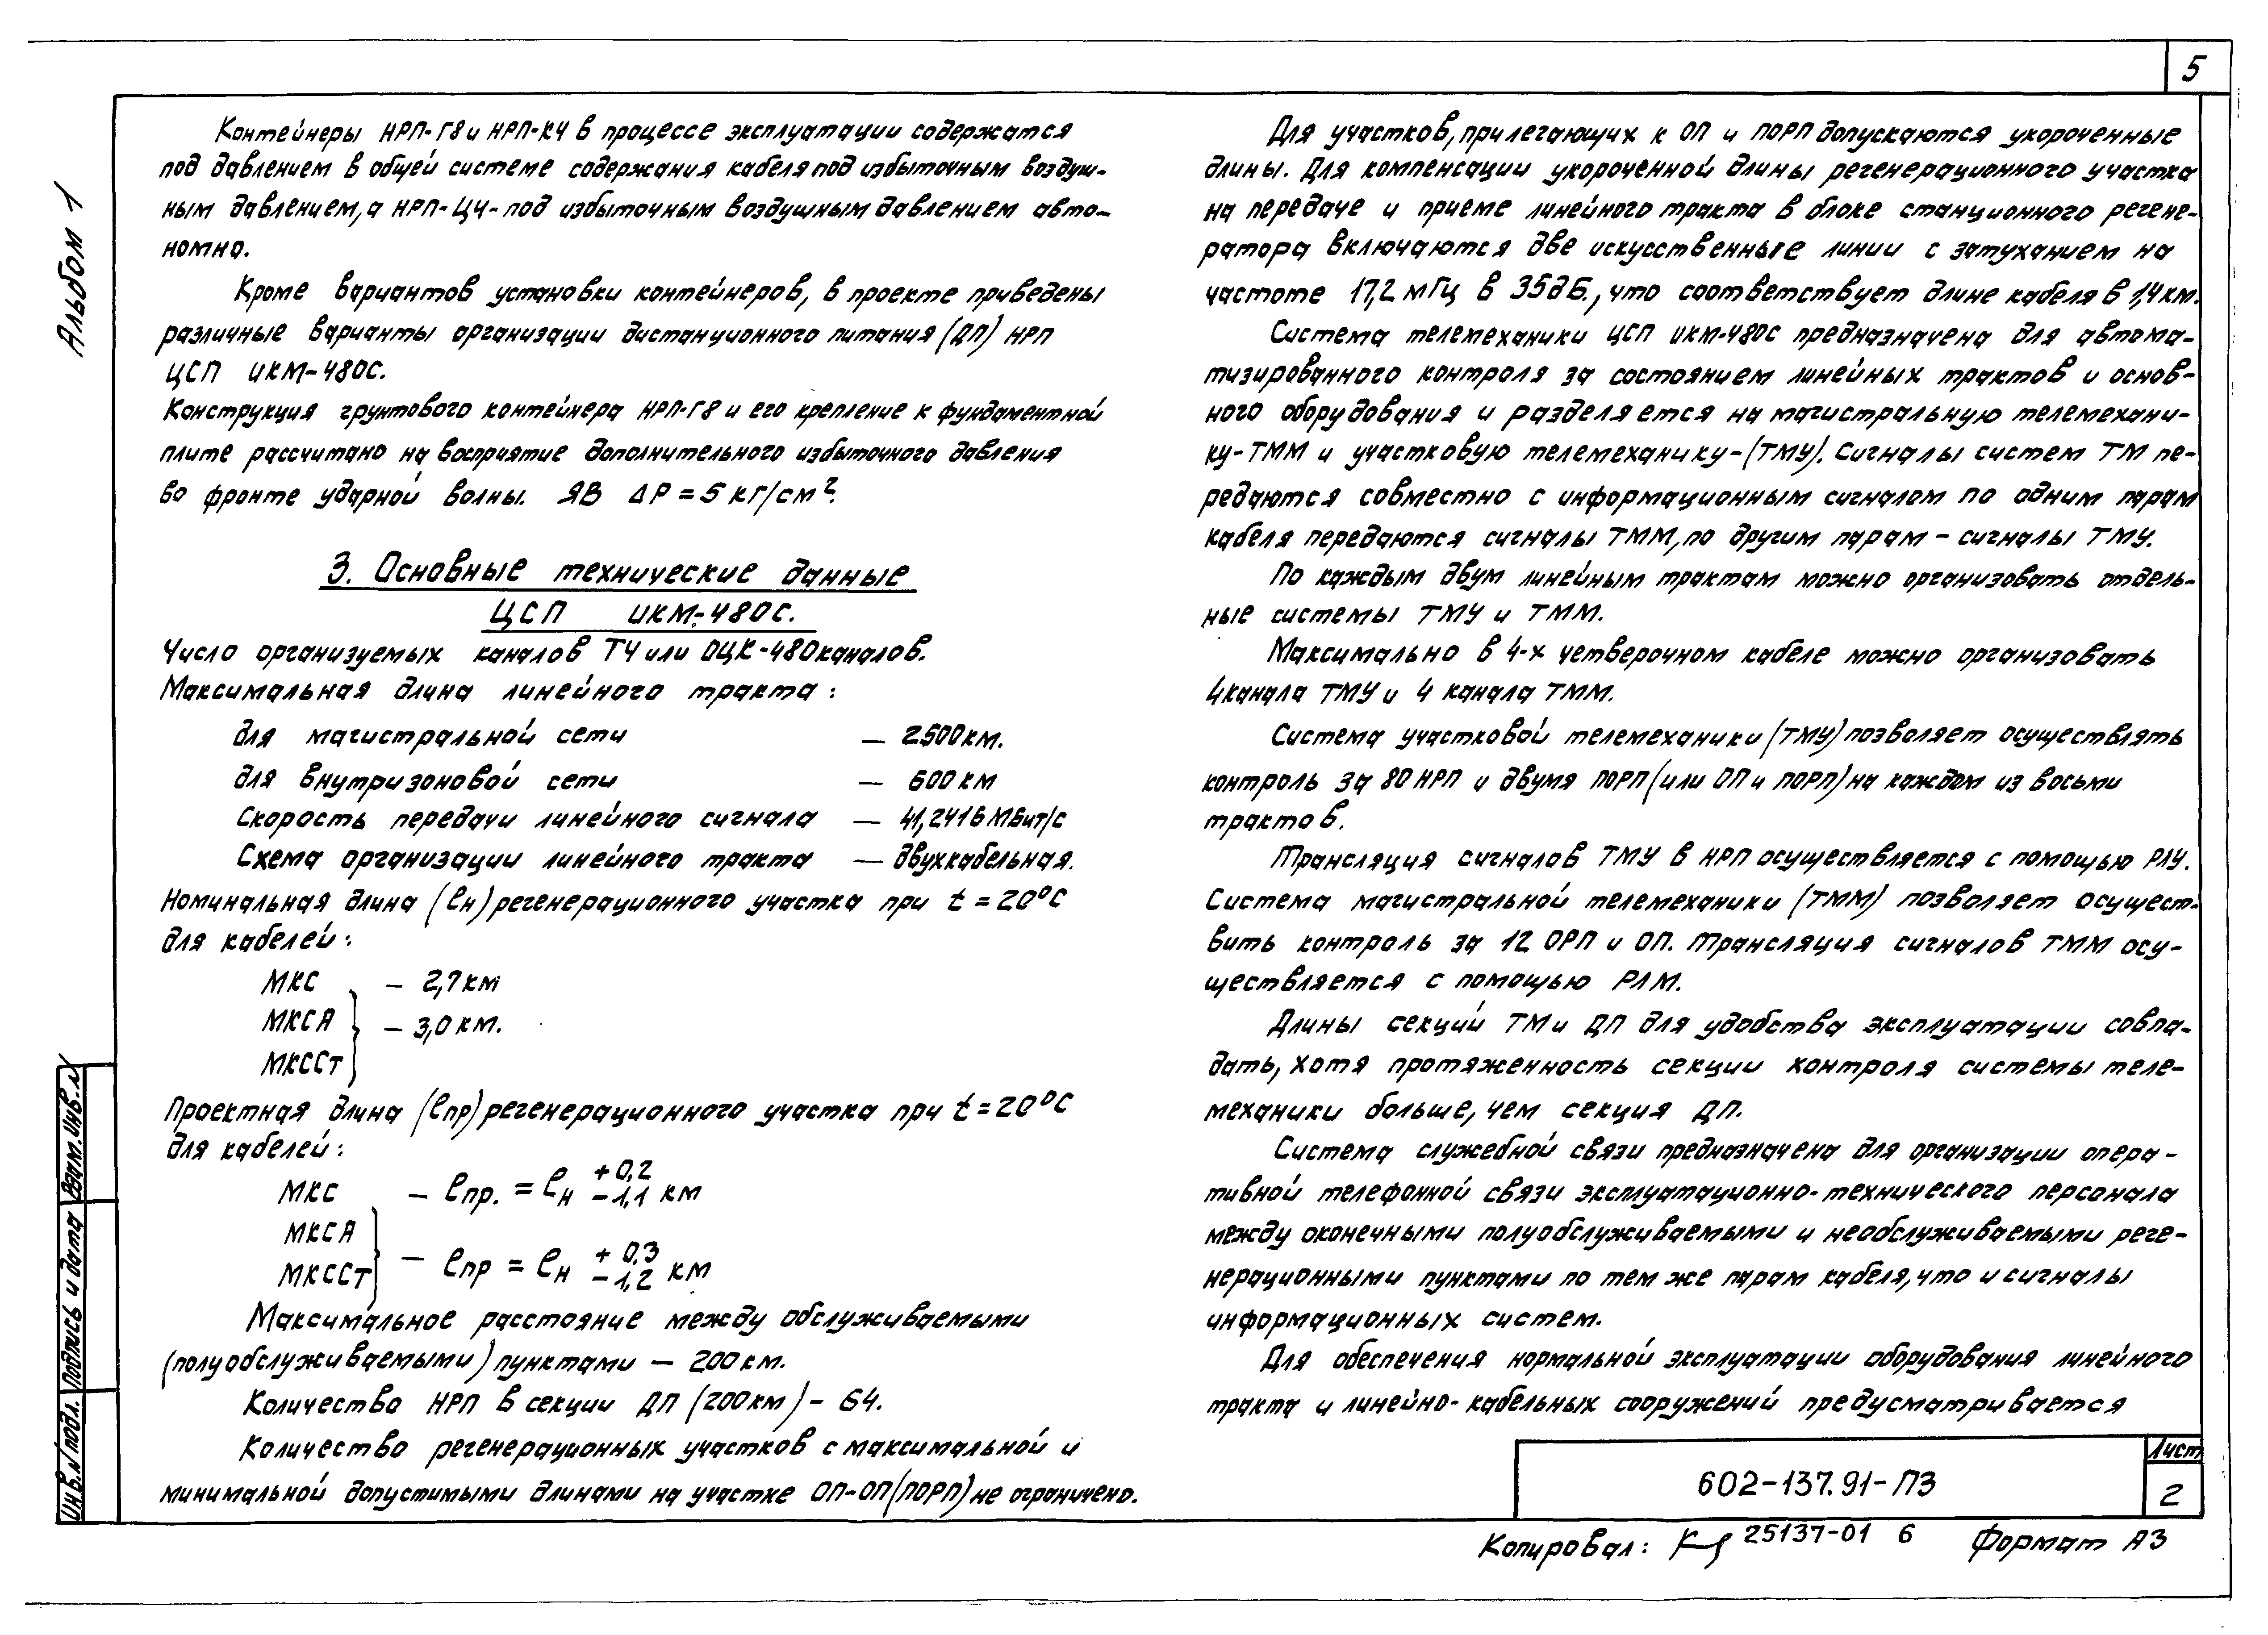 5
Альбом 1
Контейнеры НРП-Г8 и НРП-К4 в процессе эксплуатации содержатся
под давлением в общей системе содержания кабеля под избыточным воздуш-
ным давлением, а НРП-Ц4- под избыточным воздушным давлением авто-
номно.
Кроме вариантов установки контейнеров, в проекте приведены
различные варианты организации дистанционного питания (ДП) НРП
ЦСП ИКМ-480С.
Конструкция грунтового контейнера НРП-Г8 и его крепление к фундаментной
плите рассчитано на восприятие дополнительного избыточного давления
во фронте ударной волны. ЯВ ΔР = 5 кг/см².
3. Основные технические данные
ЦСП ИКМ-480С.
Число организуемых каналов ТЧ или ОЦК-480 каналов.
Максимальная длина линейного тракта:
для магистральной сети — 2500 км.
для внутризоновой сети — 600 км
Скорость передачи линейного сигнала — 41,2416 Мбит/с
Схема организации линейного тракта — двухкабельная.
Номинальная длина (ℓн) регенерационного участка при t = 20°С
для кабелей:
МКС — 2,7 км
МКСА — 3,0 км.
МКССт
Проектная длина (ℓпр) регенерационного участка при t = 20°С
для кабелей:
МКС — ℓпр. = ℓн +0,2 −1,1 км
МКСА
МКССт — ℓпр = ℓн +0,3 −1,2 км
Максимальное расстояние между обслуживаемыми
(полуобслуживаемыми) пунктами — 200 км.
Количество НРП в секции ДП (200 км) — 64.
Количество регенерационных участков с максимальной и
минимальной допустимыми длинами на участке ОП-ОП (ПОРП) не ограничено.
Для участков, прилегающих к ОП и ПОРП допускаются укороченные
длины. Для компенсации укороченной длины регенерационного участка
на передаче и приеме линейного тракта в блоке станционного регене-
ратора включаются две искусственные линии с затуханием на
частоте 17,2 мГц в 35дБ., что соответствует длине кабеля в 1,4 км.
Система телемеханики ЦСП ИКМ-480С предназначена для автома-
тизированного контроля за состоянием линейных трактов и основ-
ного оборудования и разделяется на магистральную телемехани-
ку-ТММ и участковую телемеханику-(ТМУ). Сигналы систем ТМ пе-
редаются совместно с информационным сигналом по одним парам
кабеля передаются сигналы ТММ, по другим парам - сигналы ТМУ.
По каждым двум линейным трактам можно организовать отдель-
ные системы ТМУ и ТММ.
Максимально в 4-х четверочном кабеле можно организовать
4 канала ТМУ и 4 канала ТММ.
Система участковой телемеханики (ТМУ) позволяет осуществлять
контроль за 80 НРП и двумя ПОРП (или ОП и ПОРП) на каждом из восьми
трактов.
Трансляция сигналов ТМУ в НРП осуществляется с помощью РЛУ.
Система магистральной телемеханики (ТММ) позволяет осущест-
вить контроль за 12 ОРП и ОП. Трансляция сигналов ТММ осу-
ществляется с помощью РЛМ.
Длины секций ТМ и ДП для удобства эксплуатации совпа-
дать, хотя протяженность секции контроля системы теле-
механики больше, чем секция ДП.
Система служебной связи предназначена для организации опера-
тивной телефонной связи эксплуатационно-технического персонала
между оконечными полуобслуживаемыми и необслуживаемыми реге-
нерационными пунктами по тем же парам кабеля, что и сигналы
информационных систем.
Для обеспечения нормальной эксплуатации оборудования линейного
тракта и линейно-кабельных сооружений предусматривается
Инв.N подл. Подпись и дата Взам.инв.N
602-137.91-ПЗ
Лист
2
Копировал: 25137-01 6 Формат А3